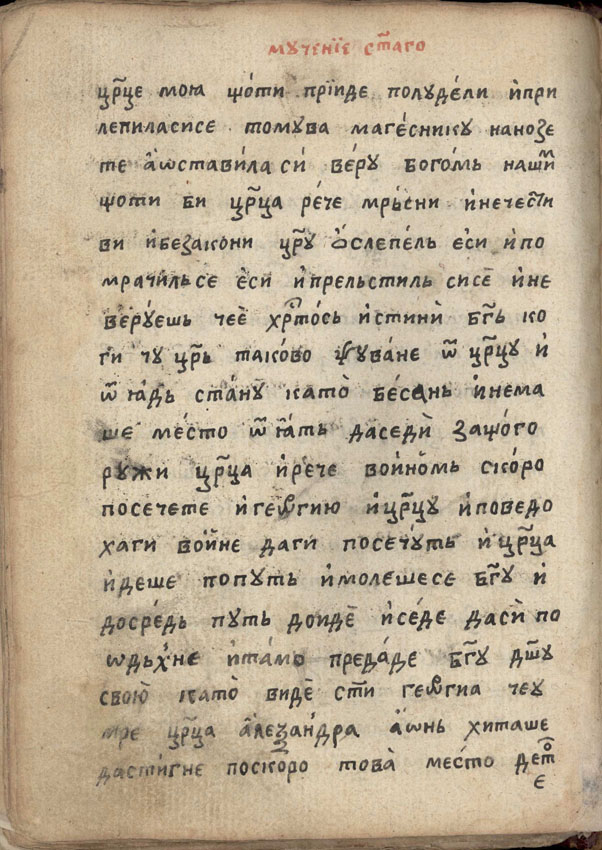 мꙋченїе ст҃аго
цр҃це моꙗ щоти прїиде полꙋде́ли и҆при
лепиласисе томꙋва маге́сникꙋ нанозе
те а҆ѡставила си́ ве́рꙋ бого́мь наши́м
щоти би цр҃ца ре́че мрь́сни и҆нечести
ви и҆безакони цр҃ꙋ ѻ҆слепе́ль е҆си и҆по
мрачи́льсе е҆си и҆прельстиль сисе и҆не
ве́рꙋешь чее҆ хр҃то́сь и҆стини бг҃ь ко
ги чꙋ цр҃ь тако́во ѱꙋва́не ѿ цр҃цꙋ и҆
ѿ ꙗ҆дь ста́нꙋ като̀ бе́сань и҆нема
ше ме́сто ѿ ꙗ҆ть даседѝ защо́го
рꙋжи цр҃ца и҆рече войно́мь ско́ро
посечете и҆геѡ́ргию и҆цр҃цꙋ и҆поведо
хаги войне даги посечꙋ́ть и҆ цр҃ца
и҆деше попꙋть и҆молешесе бг҃ꙋ и҆
досре́дь пꙋть доидѐ и҆се́де дасѝ по
ѡдьхне и҆та́мо преда́де бг҃ꙋ дш҃ꙋ
свою̀ като̀ видѐ ст҃и геѡ́ргиа чеꙋ
мре цр҃ца а҆леѯа́ндра а҆ѡнь хиташе
дастигне поскоро това̀ ме́сто дето
е